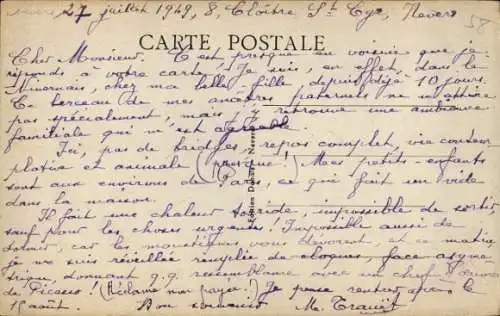 Nevers, 27 juillet 1949, 8, Cloître St Cyr, Nevers
58
CARTE POSTALE
Cher Monsieur. C'est presque en voisine que je
réponds à votre carte! Je suis, en effet, dans le
Nivernais, chez ma belle fille depuis déjà 10 jours.
Ce berceau de mes ancêtres paternels ne m'attire
pas spécialement, mais j'y retrouve une ambiance
familiale qui m'est agréable.
Ici, pas de bridges, repos complet, vie contem-
plative et animale (presque!) Mes petits-enfants
sont aux environs de Paris, ce qui fait un vide
dans la maison.
Il fait une chaleur torride, impossible de sortir
sauf pour les choses urgentes! Impossible aussi de
dormir, car les moustiques vous dévorent et ce matin
je me suis réveillée remplie de cloques, face asymé-
trique, donnant q.q. ressemblance avec un chef d'œuvre
de Picasso! (Réclame non payée!) Je pense rentrer après le
15 août. Bon souvenir M.